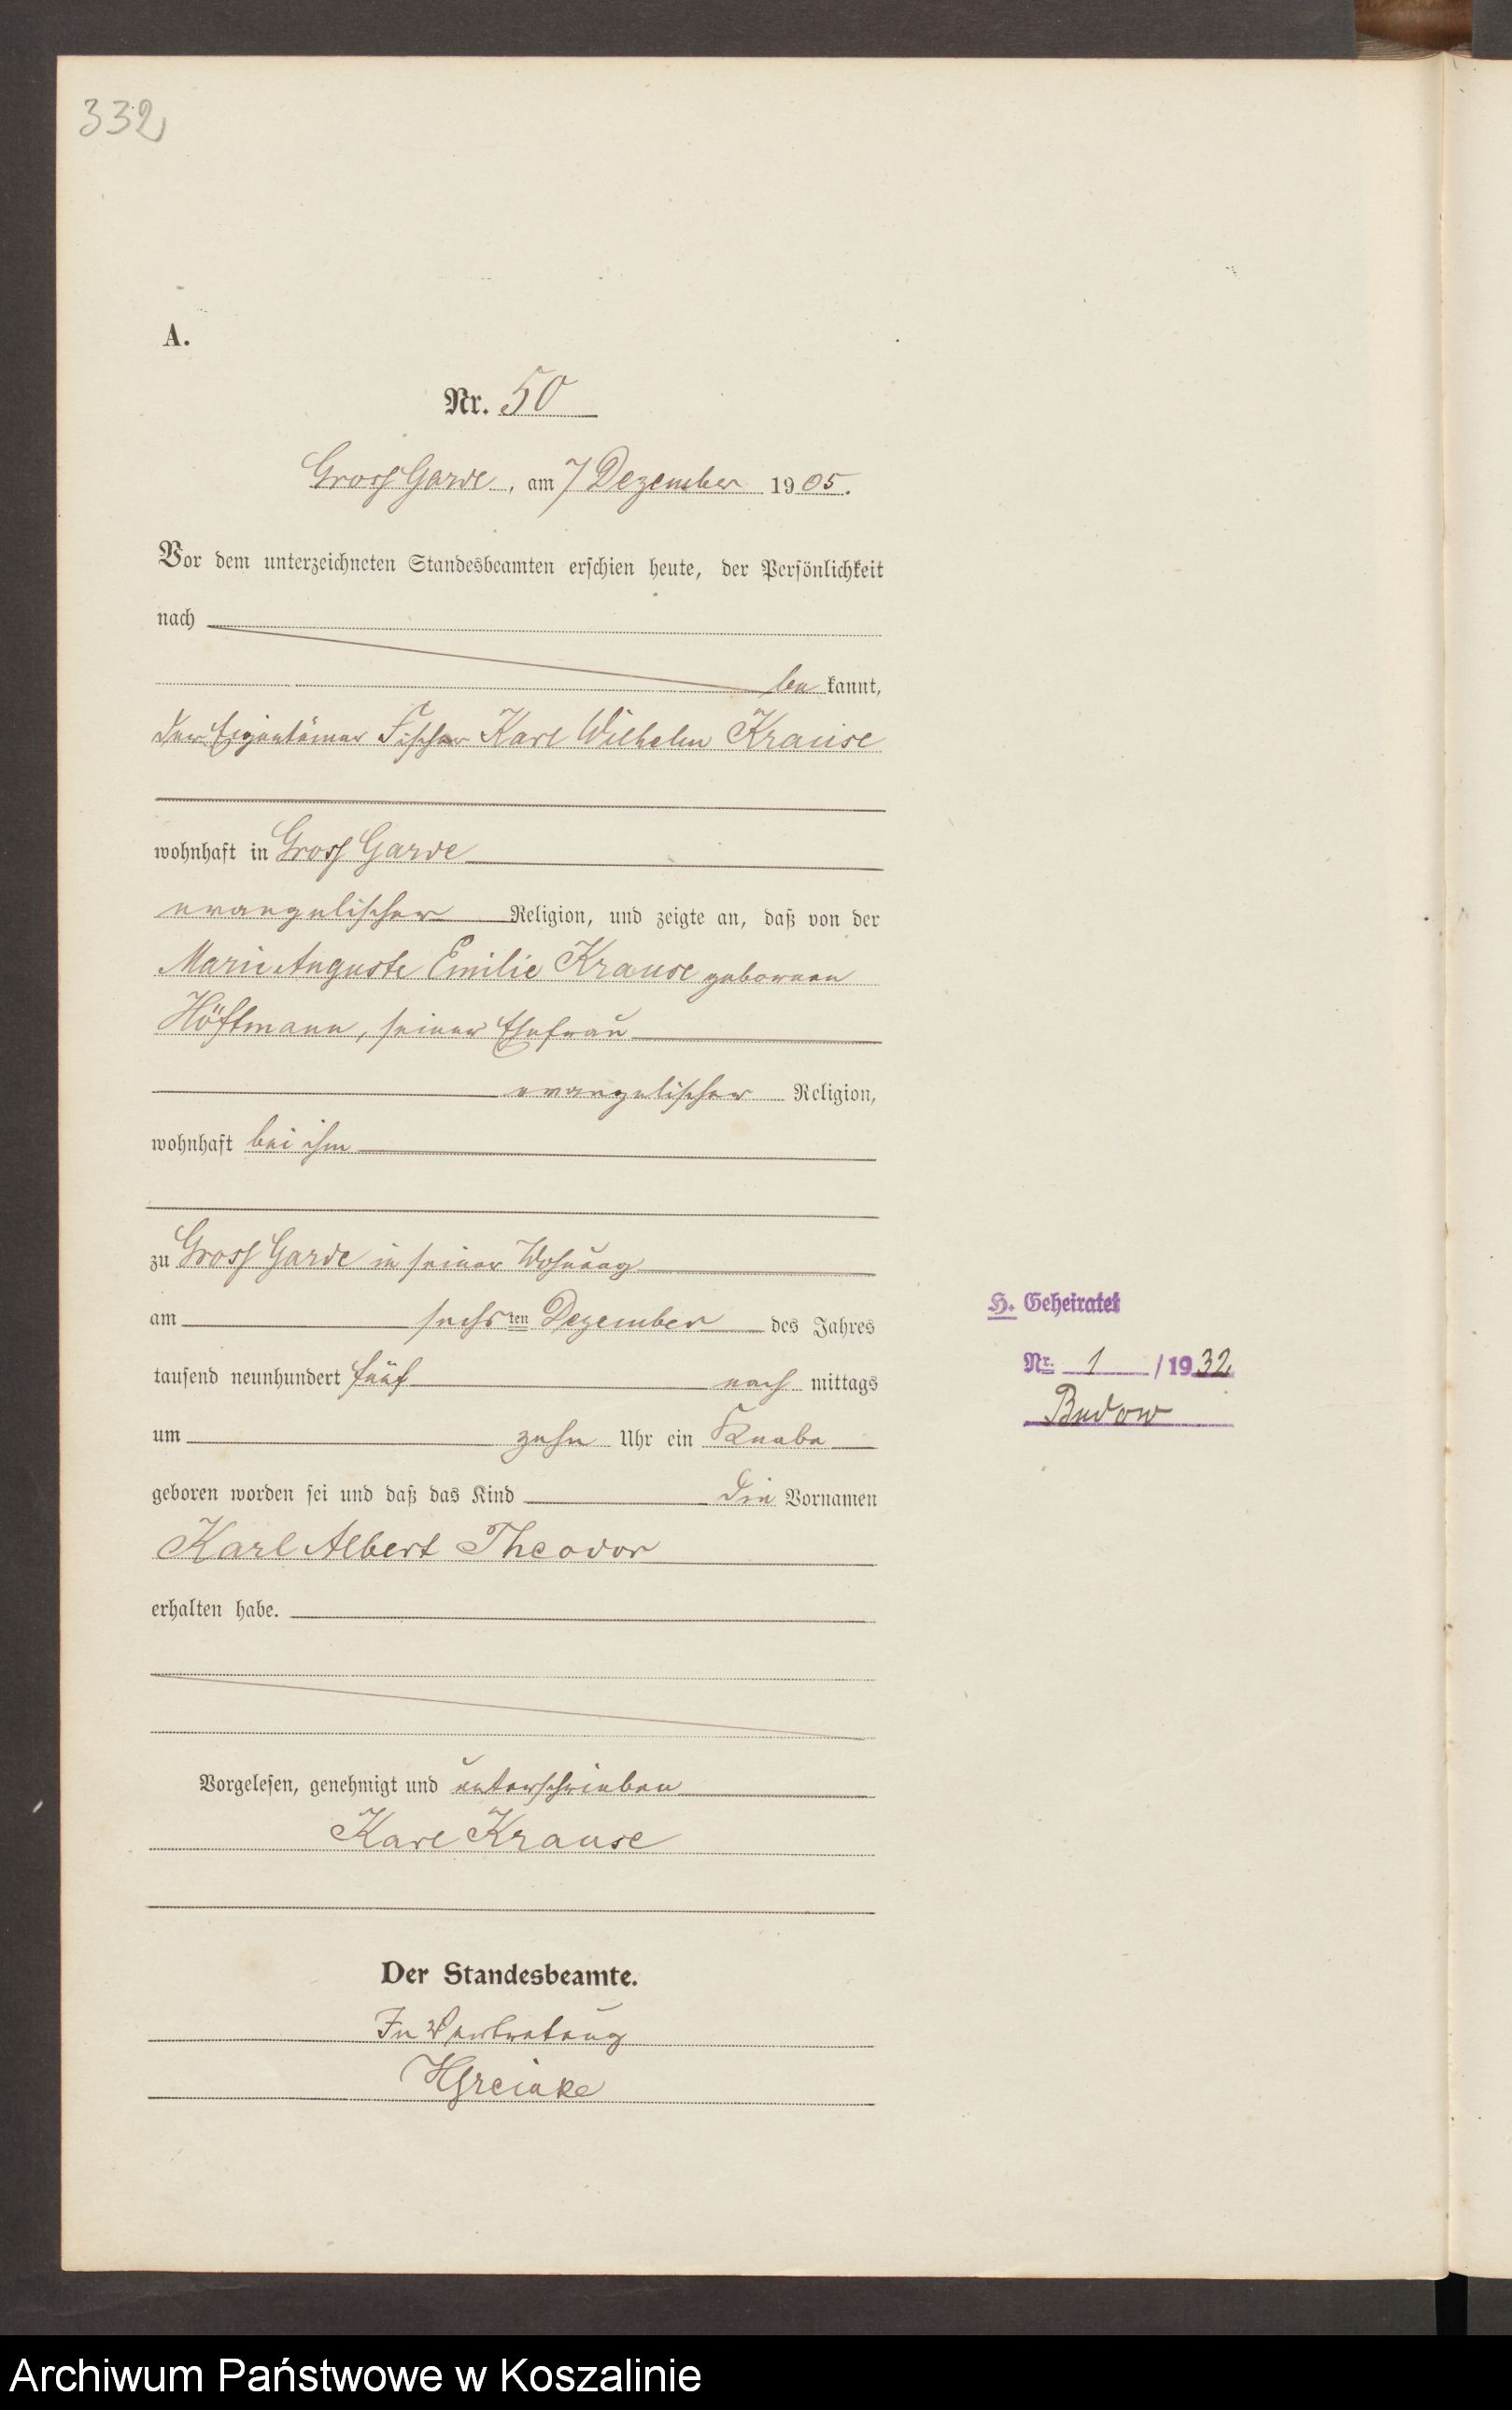 332
A.
Nr. 50
Gross Garde, am 7 Dezember 1905.
Vor dem unterzeichneten Standesbeamten erschien heute, der Persönlichkeit
nach
be kannt,
der Eigentümer Fischer Karl Wilhelm Krause
wohnhaft in Gross Garde
evangelischer Religion, und zeigte an, daß von der
Marie Auguste Emilie Krause geborenen
Höftmann, seiner Ehefrau
evangelischer Religion,
wohnhaft bei ihm
zu Gross Garde in seiner Wohnung
am sechsten Dezember des Jahres
tausend neunhundert fünf nach mittags
um zehn Uhr ein Knabe
geboren worden sei und daß das Kind die Vornamen
Karl Albert Theodor
erhalten habe.
Vorgelesen, genehmigt und unterschrieben
Karl Krause
Der Standesbeamte.
In Vertretung
H. Geheiratet
Nr. 1 / 1932
Budow
Archiwum Państwowe w Koszalinie